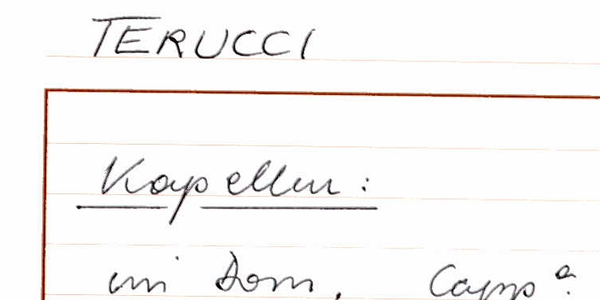 TERUCCI
Kapellen:
im Dom, Capp a.